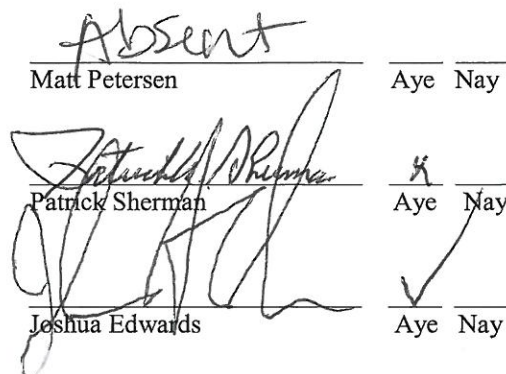 Absent
Matt Petersen Aye Nay
Patrick Sherman
Patrick Sherman Aye Nay
Joshua Edwards Aye Nay